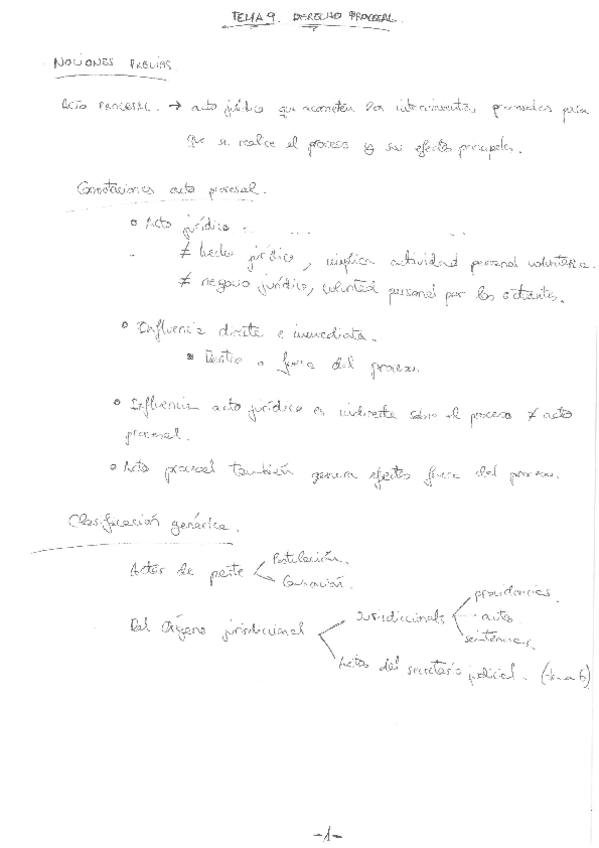 TEMA 9. DERECHO PROCESAL.
NOCIONES PREVIAS
ACTO PROCESAL. → acto jurídico que acometen los intervinientes procesales para
que se realice el proceso y sus efectos principales.
Connotaciones acto procesal.
Acto jurídico.
≠ hecho jurídico, implica actividad personal voluntaria.
≠ negocio jurídico, voluntad personal por los actuantes.
Influencia directa e inmediata.
Dentro o fuera del proceso.
Influencia acto jurídico es indirecta sobre el proceso ≠ acto
procesal.
Acto procesal también genera efectos fuera del proceso.
Clasificación genérica.
Actos de parte
Postulación.
Causación.
Del Órgano jurisdiccional
Jurisdiccionales
providencias.
autos.
sentencias.
Actos del secretario judicial. (tema 6)
-1-